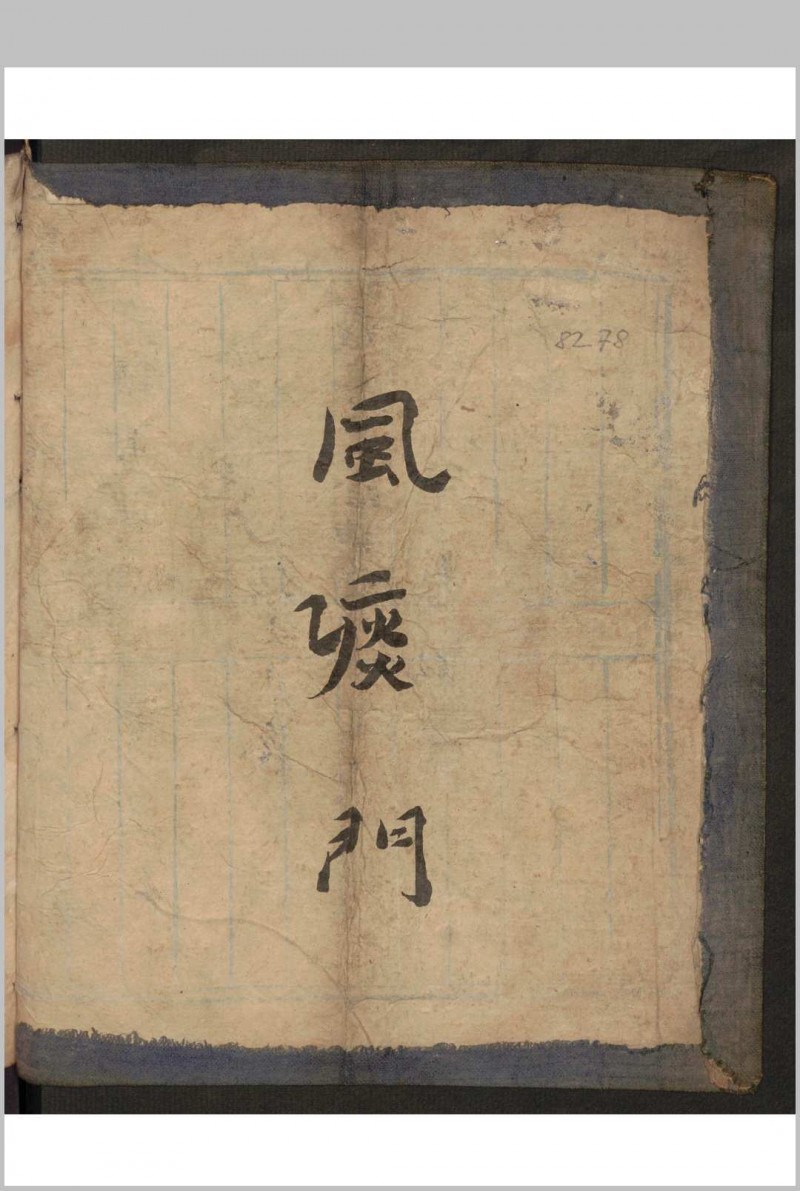 8278
風
痰
門